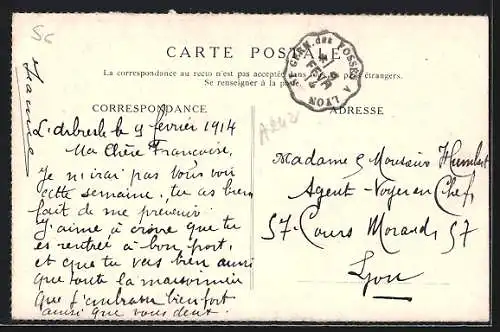 5c
CARTE POSTALE
La correspondance au recto n'est pas acceptée dans pays étrangers.
Se renseigner à la
CORRESPONDANCE
ADRESSE
ST GERM. DES FOSSÉS A LYON
FEVR
14
Jeanne
L'Arbresle le 9 février 1914
Ma Chère Françoise,
Je n'irai pas vous voir
cette semaine, tu as bien
fait de me prévenir
J'aime à croire que tu
es rentrée à bon port,
et que tu vas bien ainsi
que toute la maisonnée
que j'embrasse bien fort
ainsi que vous deux.
Madame & Monsieur Humbert
Agent-Voyer en Chef,
57 Cours Morand, 57
Lyon